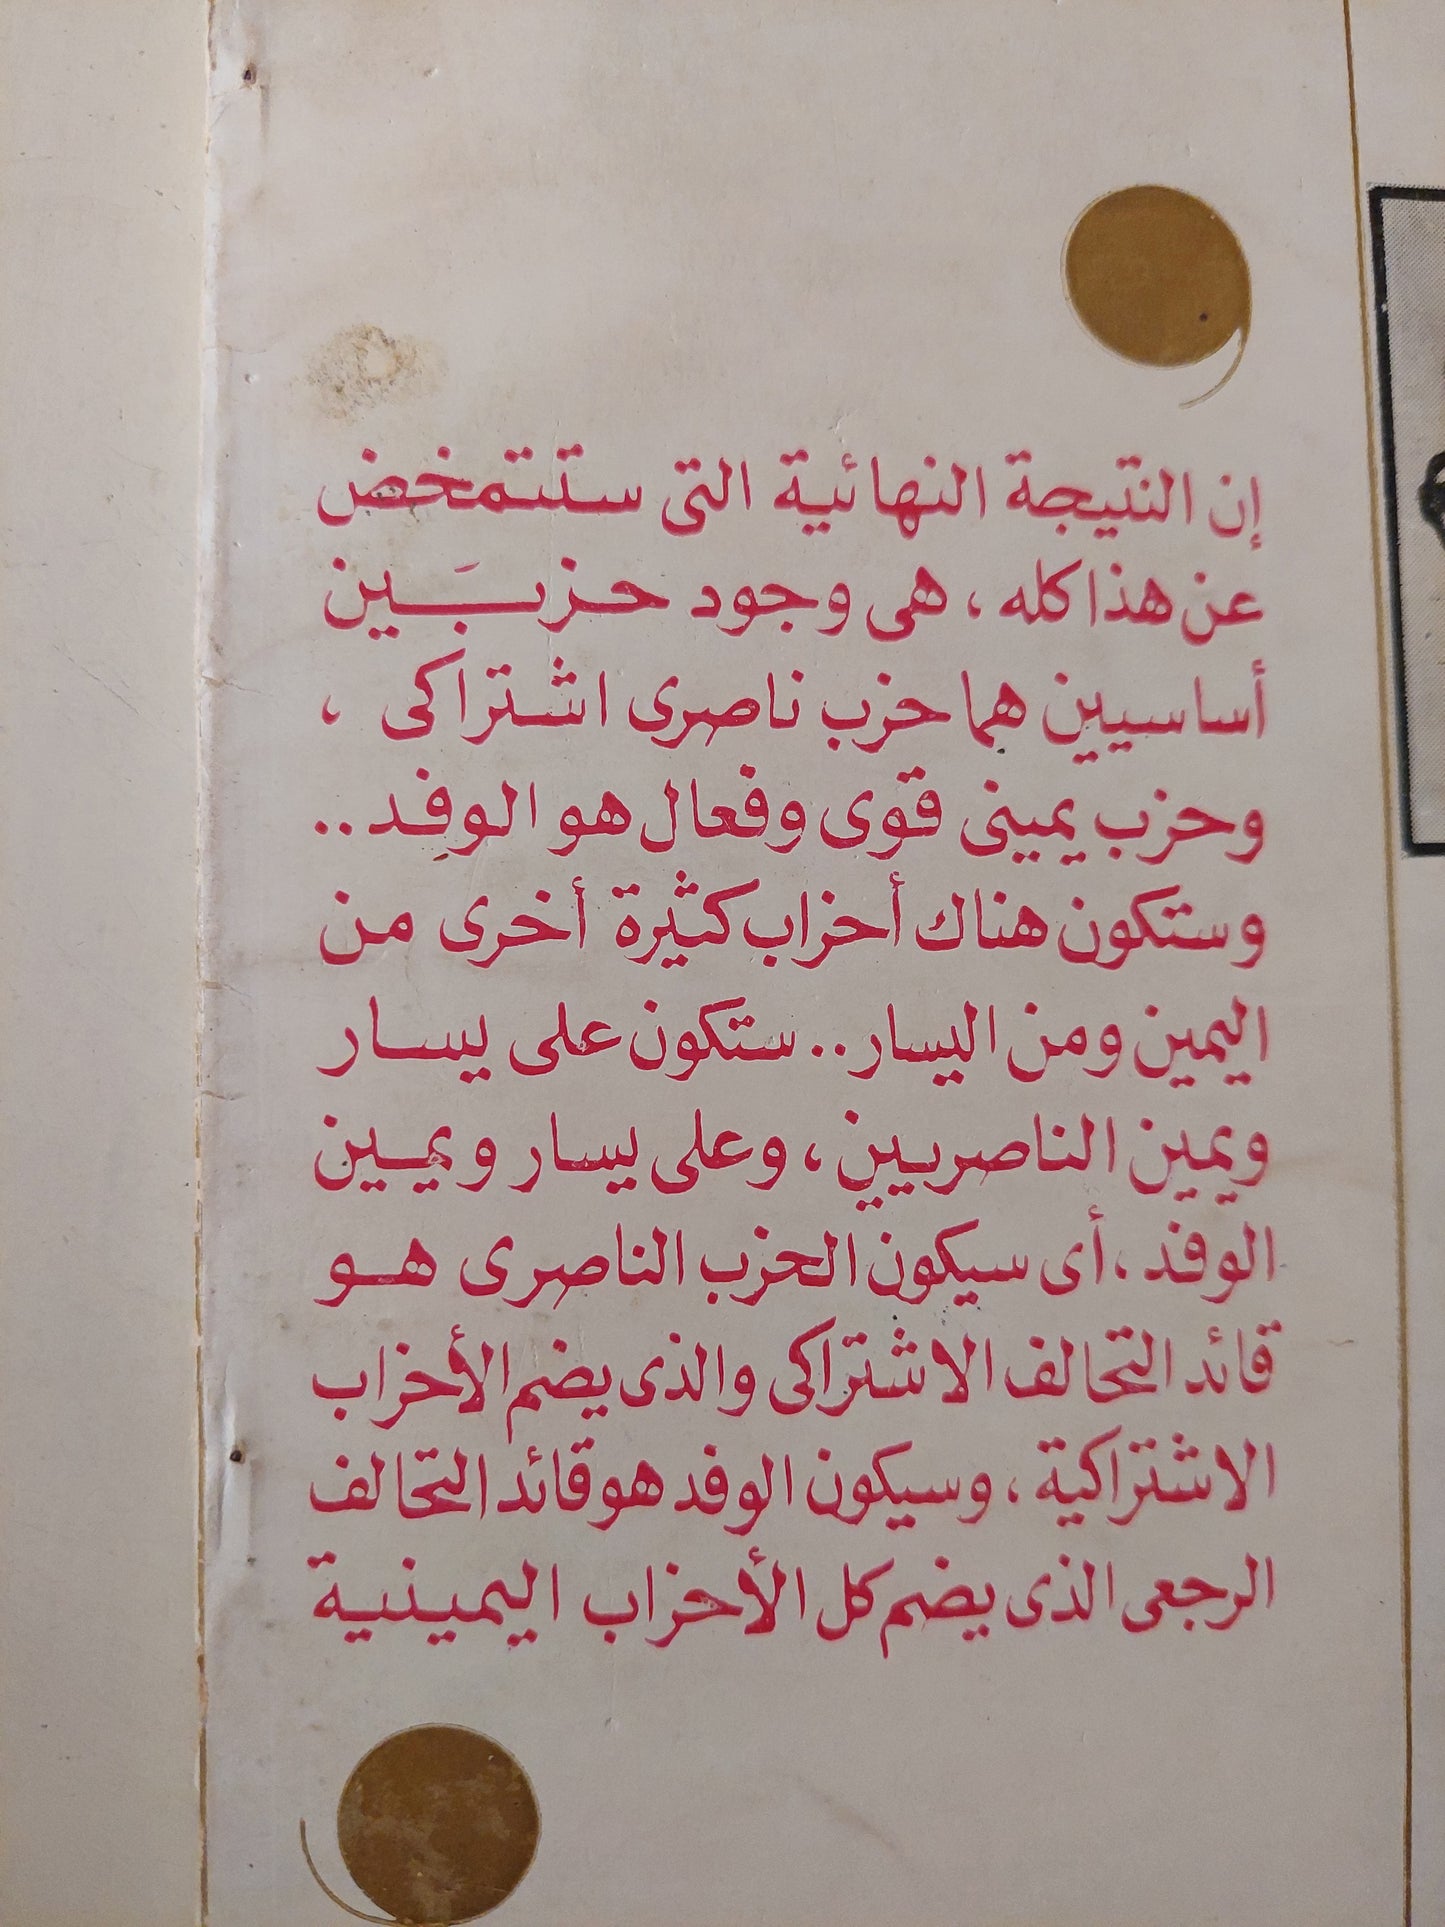 إن النتيجة النهائية التى ستتمخض
عن هذا كله ، هى وجود حزبَين
أساسيين هما حزب ناصرى اشتراكى ،
وحزب يمينى قوى وفعال هو الوفد ..
وستكون هناك أحزاب كثيرة أخرى من
اليمين ومن اليسار .. ستكون على يسار
ويمين الناصريين ، وعلى يسار ويمين
الوفد ، أى سيكون الحزب الناصرى هو
قائد التحالف الاشتراكى والذى يضم الأحزاب
الاشتراكية ، وسيكون الوفد هو قائد التحالف
الرجعى الذى يضم كل الأحزاب اليمينية